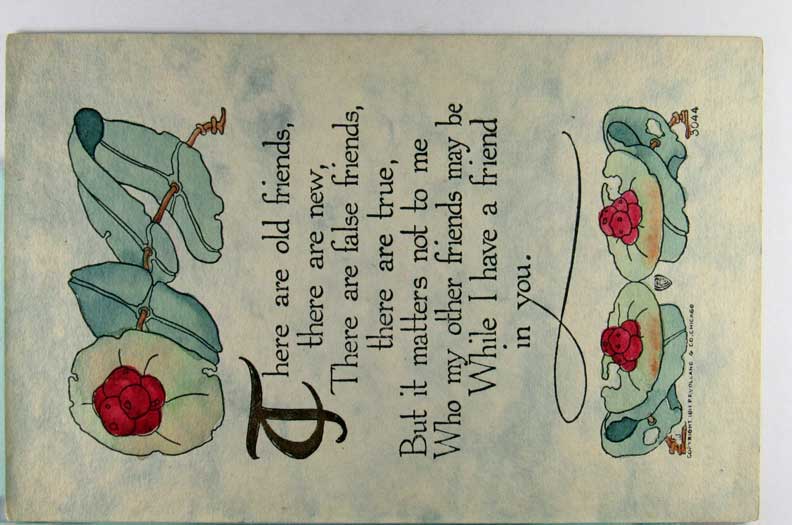 There are old friends,
there are new,
There are false friends,
there are true,
But it matters not to me
Who my other friends may be
While I have a friend
in you.
COPYRIGHT, 1911 P.F. VOLLAND & CO., CHICAGO
3044